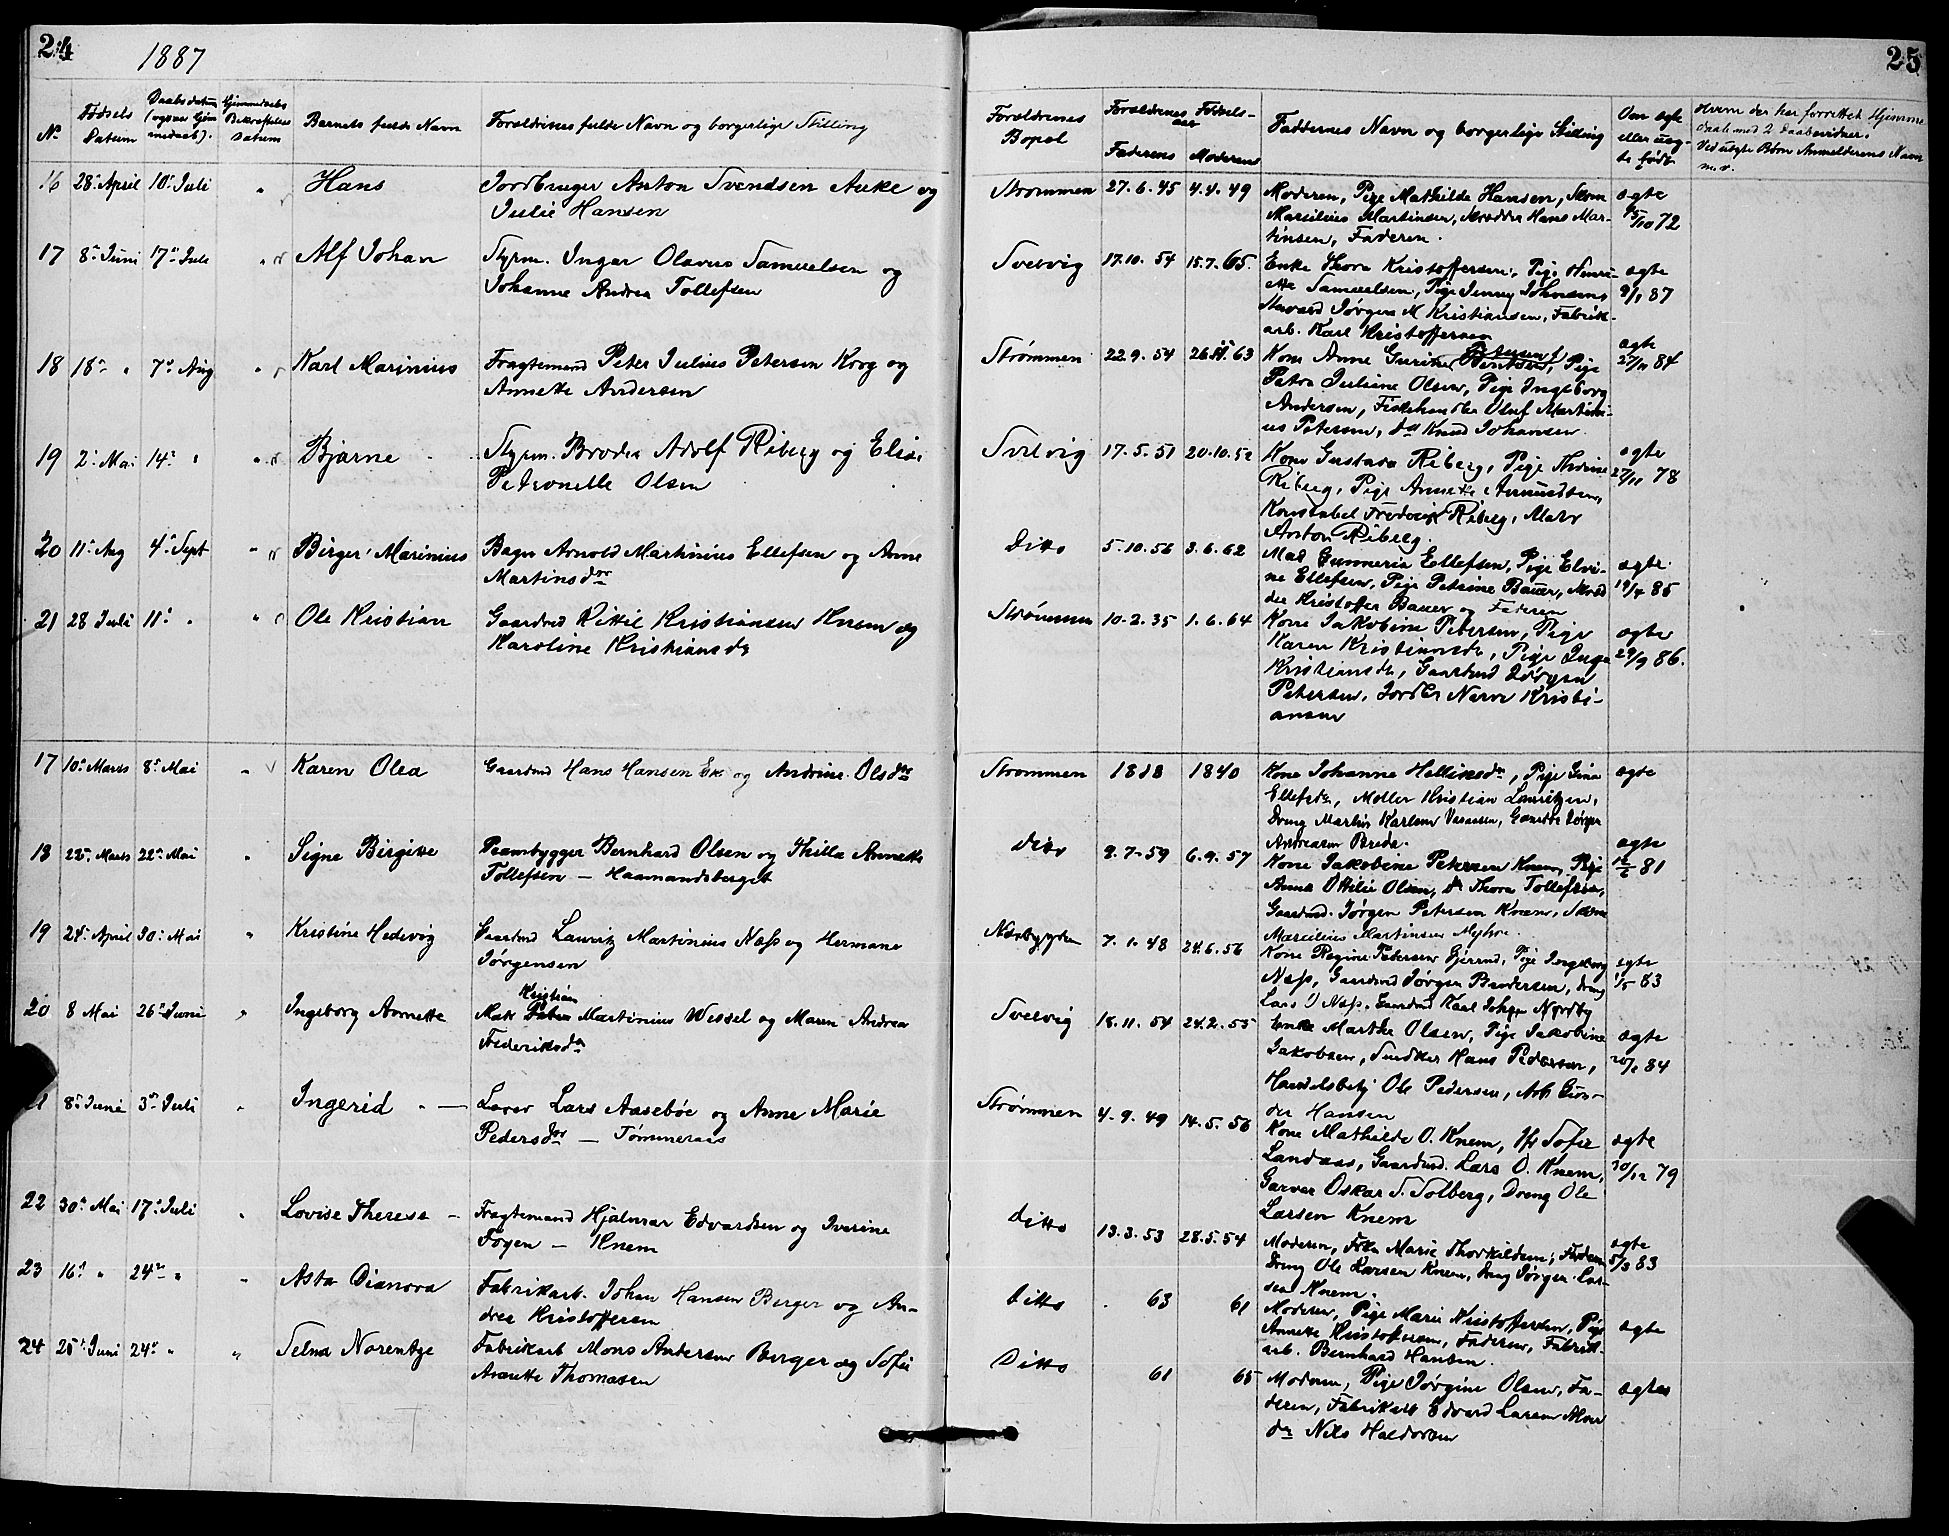 24
1887
№
Fødsels Datum
Daabsdatum (ogsaa Hjemmedaab).
Hjemmedaabs Bekræftelses datum
Barnets fulde Navn
Forældrenes fulde Navn og borgerlige Stilling
16 28de April 10de Juli " Hans Jordbruger Anton Svendsen Auke og
Julie Hansen
17 8de Juni 17de Juli " Alf Johan Styrm. Ingar Olavus Samuelsen og
Johanne Andrea Tollefsen
18 18de " 7de Aug " Karl Marinius Fragtemand Peter Julius Petersen Krog og
Annette Andersen
19 2de Mai 14de " " Bjarne Styrm. Broder Adolf Riberg og Elise
Petronelle Olsen
20 11te Aug 4de Sept " Birger Marinius Bager Arnold Martinius Ellefsen og Anne
Martinsdr
21 28 Juli 11te " " Ole Kristian Gaardmd Kittil Kristiansen Knem og
Karoline Kristiansdr
17 10de Marts 8de Mai " Karen Olea Gaardmd Hans Hansen Ek og Andrine Olsdr
18 22de Marts 22de Mai " Signe Birgitte Prambygger Bernhard Olsen og Thilla Annette
Tollefsen – Haamandsberget
19 24de April 30de Mai " Kristine Hedevig Gaardmd Lauritz Martinius Næss og Hermane
Jørgensen
20 8 Mai 26de Juni " Ingeborg Annette Matr Kristian Martinius Wessel og Maren Andrea
Frederiksdr
21 8de Juni 3de Juli " Ingerid — Lærer Lars Aasebøe og Anne Marie
Pedersdr — Tømmeraas
22 30te Mai 17de Juli " Lovise Therese – Fragtemand Hjalmar Edvardsen og Iverine
Foyen — Knem
23 16de " 24de " " Asta Dianora Fabrikarb. Johan Hansen Berger og An-
drea Kristoffersen
24 25de Juni 24de " " Selma Norentze Fabrikarb Mons Andersen Berger og Sofie
Annette Thomasen
25
Forældrenes Bopæl
Forældrenes Fødselsaar
Faderens Moderens
Faddernes Navn og borgerlige Stilling
Om ægte eller uægte født
Hvem der har forrettet Hjemmedaab med 2 Daabsvidner.
Ved uægte Børn Anmelderens Navn m.v.
Strømmen 27.6.45 4.4.49 Moderen, Pige Mathilde Hansen, Skom ægte
Marsilius Martinsen, Skrædder Hans Mar- 72
tinsen, Faderen.
Svelvig 17.10.54 15.7.65. Enke Thora Kristoffersen, Pige Henri- ægte
ette Samuelsen, Pige Jenny Johnsen, 9/1 87
Stuvard Jørgen M Kristiansen, Fabrik-
arb. Karl Kristoffersen
Strømmen 22.9.54 63 Kone Anne Gurine Petersen, Pige ægte 27/11 84
Petra Juliane Olsen, Pige Ingeborg
Andersen, Fiskehandler Oluf Martini-
us Petersen, do Knud Johansen
Svelvig 17.5.51 20.10.52 Kone Gustava Riberg, Pige Thrine ægte
Riberg, Pige Annette Amundsen, 27/11 78
Konstabel Frederik Riberg, Matr
Anton Riberg.
Ditto 5.10.56 3.6.62 Mad Gunneria Ellefsen, Pige Elvi- ægte
ne Ellefsen, Pige Petrine Bauer, Skræd 19/4 85
der Kristoffer Bauer og Faderen
Strømmen 10.2.35 1.6.64 Kone Jakobine Petersen, Pige ægte
Karen Kristiansdr, Pige Inga 29/9 86.
Kristiansdr, Gaardmd Jørgen
Petersen, Jordbr Narve Kristi-
ansen
Strømmen 1838 1840 Kone Johanne Helliksdr, Pige Gina ægte
Ellefsdr, Møller Kristian Lauritzen,
Dreng Martin Karlsen Gaardbr Jørgen
Andreasen Breda.
ditto 9.7.59 6.9.57 Kone Jakobine Petersen Knem, Pige ægte
Anna Ottilie Olsen, do Thora Tollefsen, 81
Gaardmd. Jørgen Petersen Knem, Skom
Marsilius Martinsen
Nesbygden 7.1.48 24.6.56 Kone Regine Petersen Gjerud, Pige Ingeborg ægte
Næss, Gaardmd Jørgen Berntsen, Dreng 1/5 83
Lars J Næss, Gaardmd Karl Johan Nordby
Svelvig 18.11.54 24.2.55 Enke Marthe Olsen, Pige Jakobine ægte
Jakobsen, Snedker Hans Pedersen, 84
Handelsbetj Ole Pedersen, Arb Gun-
der Hansen
Strømmen 4.9.49 14.5.56 Kone Mathilde O. Knem, Jfr Sofie ægte
Landaas, Gaardmd. Lars O. Knem, 30/12 79
Garver Oskar S. Solberg, Dreng Ole
Larsen Knem
ditto 13.3.53 28.5.54 Moderen, Frk Marie Thorkildsen, Faderen ægte
Dreng Ole Larsen Knem, Dreng Jørgen Lar- 5/3 83
sen Knem.
Ditto 63 61 Moderen, Pige Marie Kristoffersen, Pige ægte
Annette Kristoffersen, Faderen, Fabrik-
arb. Bernhard Hansen.
Ditto 61 65 Moderen, Pige Jørgine Olsen, Fa- ægte
deren, Fabrikarb Edvard Larsen
do Nils Haldorsen